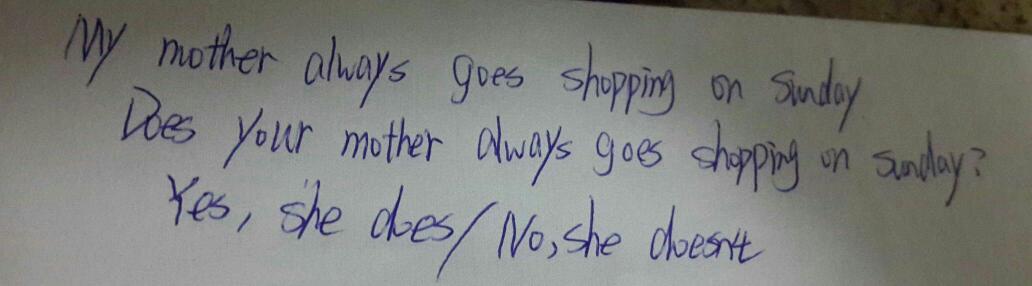 My mother always goes shopping on Sunday
Does your mother always goes shopping on sunday?
Yes, she does/No, she doesn't